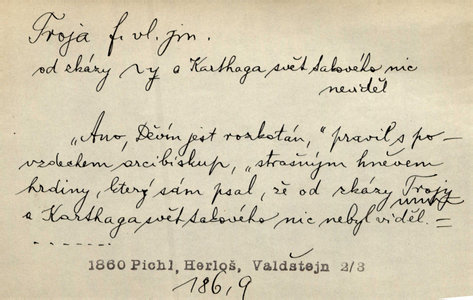 Troja f. vl. jm.
od zkázy ~y a Karthaga svět takového nic
neviděl
„Ano, Děvín jest rozkotán,“ pravil s po-
vzdechem arcibiskup, „strašným hněvem
hrdiny, který sám psal, že od zkázy Troje
a Karthaga svět takového nic nebyl viděl. =
1860 Pichl, Herloš, Valdštejn 2/3
186,9